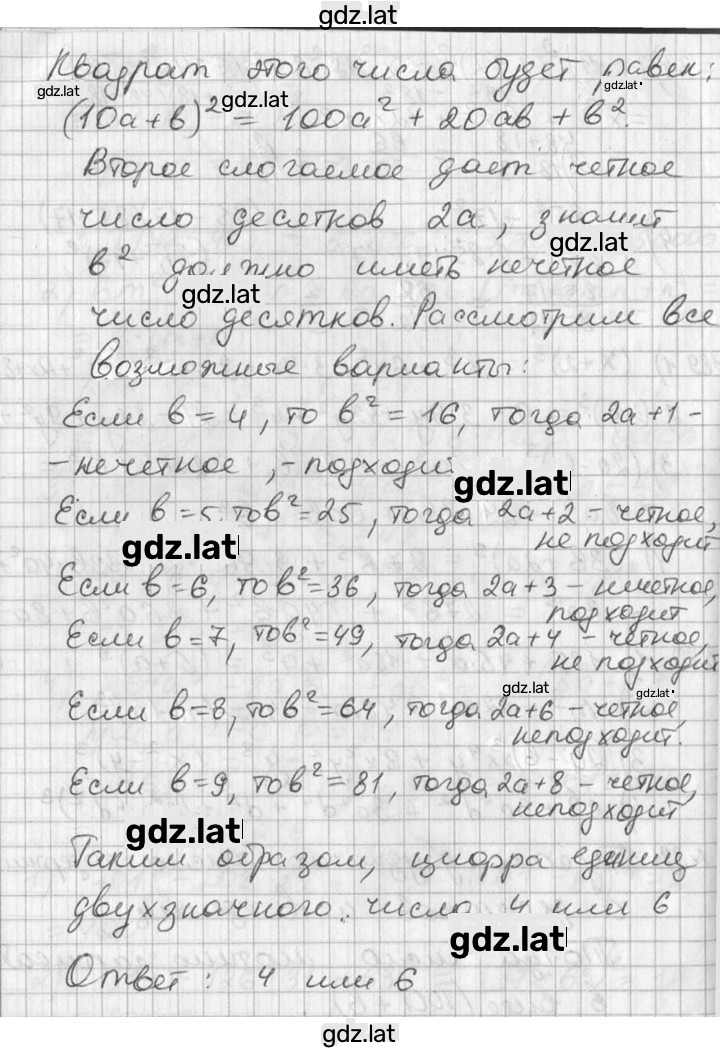 gdz.lat
Квадрат этого числа будет равен:
gdz.lat gdz.lat gdz.lat
(10a+b)² = 100a² + 20ab + b².
Второе слагаемое дает четное
число десятков 2a, значит
gdz.lat
b² должно иметь нечетное
gdz.lat
число десятков. Рассмотрим все
возможные варианты:
Если b=4, то b²=16, тогда 2a+1-
-нечетное, - подходит
gdz.lat
Если b=5, то b²=25, тогда 2a+2 - четное,
не подходит
gdz.lat
Если b=6, то b²=36, тогда 2a+3 - нечетное,
подходит
Если b=7, то b²=49, тогда 2a+4 - четное,
не подходит
gdz.lat gdz.lat
Если b=8, то b²=64, тогда 2a+6 - четное,
не подходит.
Если b=9, то b²=81, тогда 2a+8 - четное,
не подходит
gdz.lat
Таким образом, цифра единиц
двухзначного числа 4 или 6
gdz.lat
Ответ: 4 или 6
gdz.lat